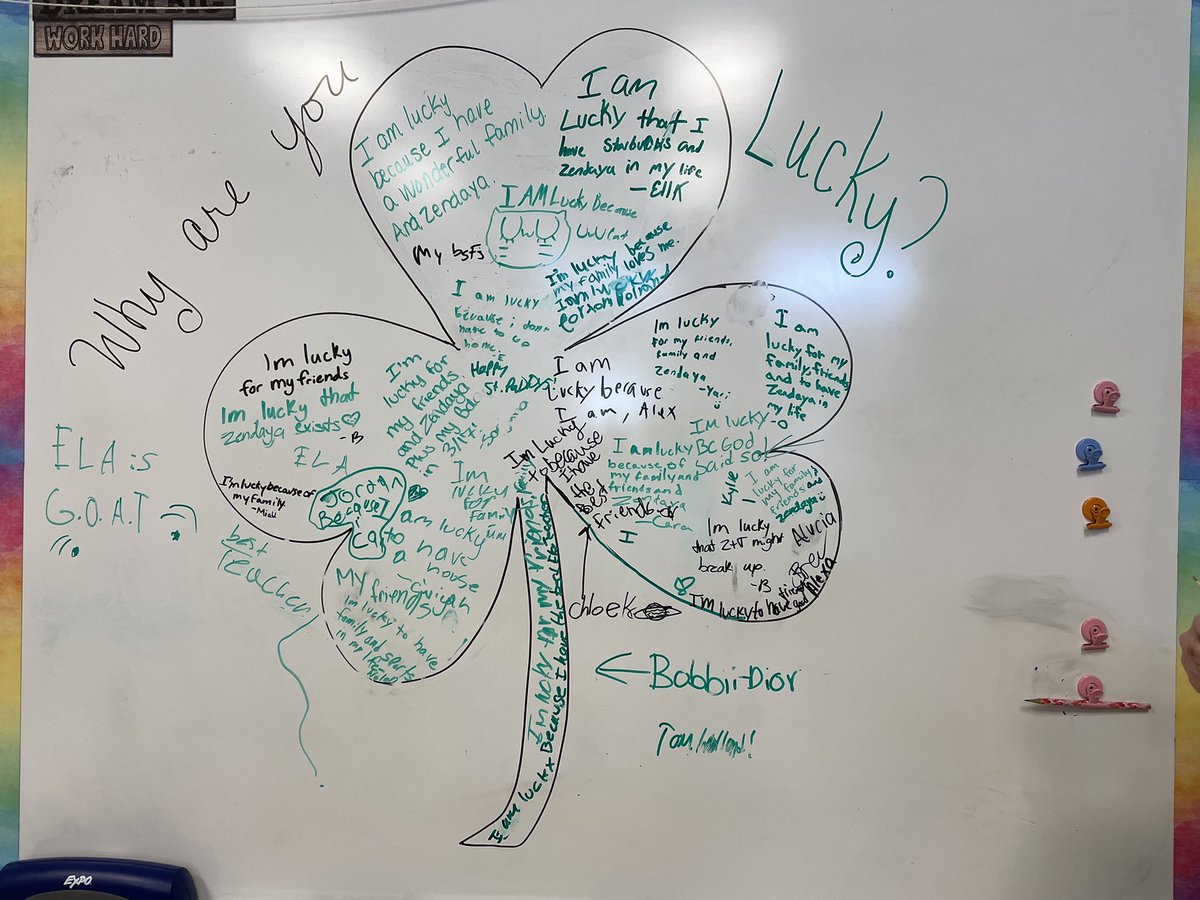 DREAM BIG
WORK HARD
Why are you
Lucky?
I am lucky
because I have
a wonderful family.
And Zendaya.
My bsfs
I am
Lucky that I
have Starbucks and
Zendaya in my life
-EllK
I AM Lucky Because
UwU Cat
I'm lucky because
my family loves me.
I am lucky
for Tom Holland
I am lucky
because i don't
have to go
home.
Happy
St. PaDDys
Im lucky
for my friends
Im lucky that
Zendaya exists
-B
ELA
I'm lucky because of
my family.
-Miah
I'm
lucky for
my friends
and Zendaya
Plus my Bdc
in 3/17!
Jordan
Because I
Can
Im
lucky
for
family
I am lucky
to have
a house
-Giviyah
My
friends
I'm lucky to have
family and sports
in my life
I am
Lucky because
I am, Alex
Im Lucky
because
I have
the
best
friends
Im lucky
for my friends,
family and
Zendaya
-Yari
I am
lucky for my
family, friends
and to have
Zendaya in
my life
-O
I'M lucky
BC God
Said so!
I am lucky
because of
my family and
friends and
-Cara
I
Kylie
I am
lucky for
my family,
friends and
Zendaya
Im lucky
that Z+T might
break up.
-B
Alucia
Bre
Alexa
I'm lucky to have good
friends
chloe K
ELA is
G.O.A.T
best
Teacher
I'm lucky for my friends family
I am lucky Because I have the best ELA teacher
Bobbii-Dior
Tom Holland!
EXPO